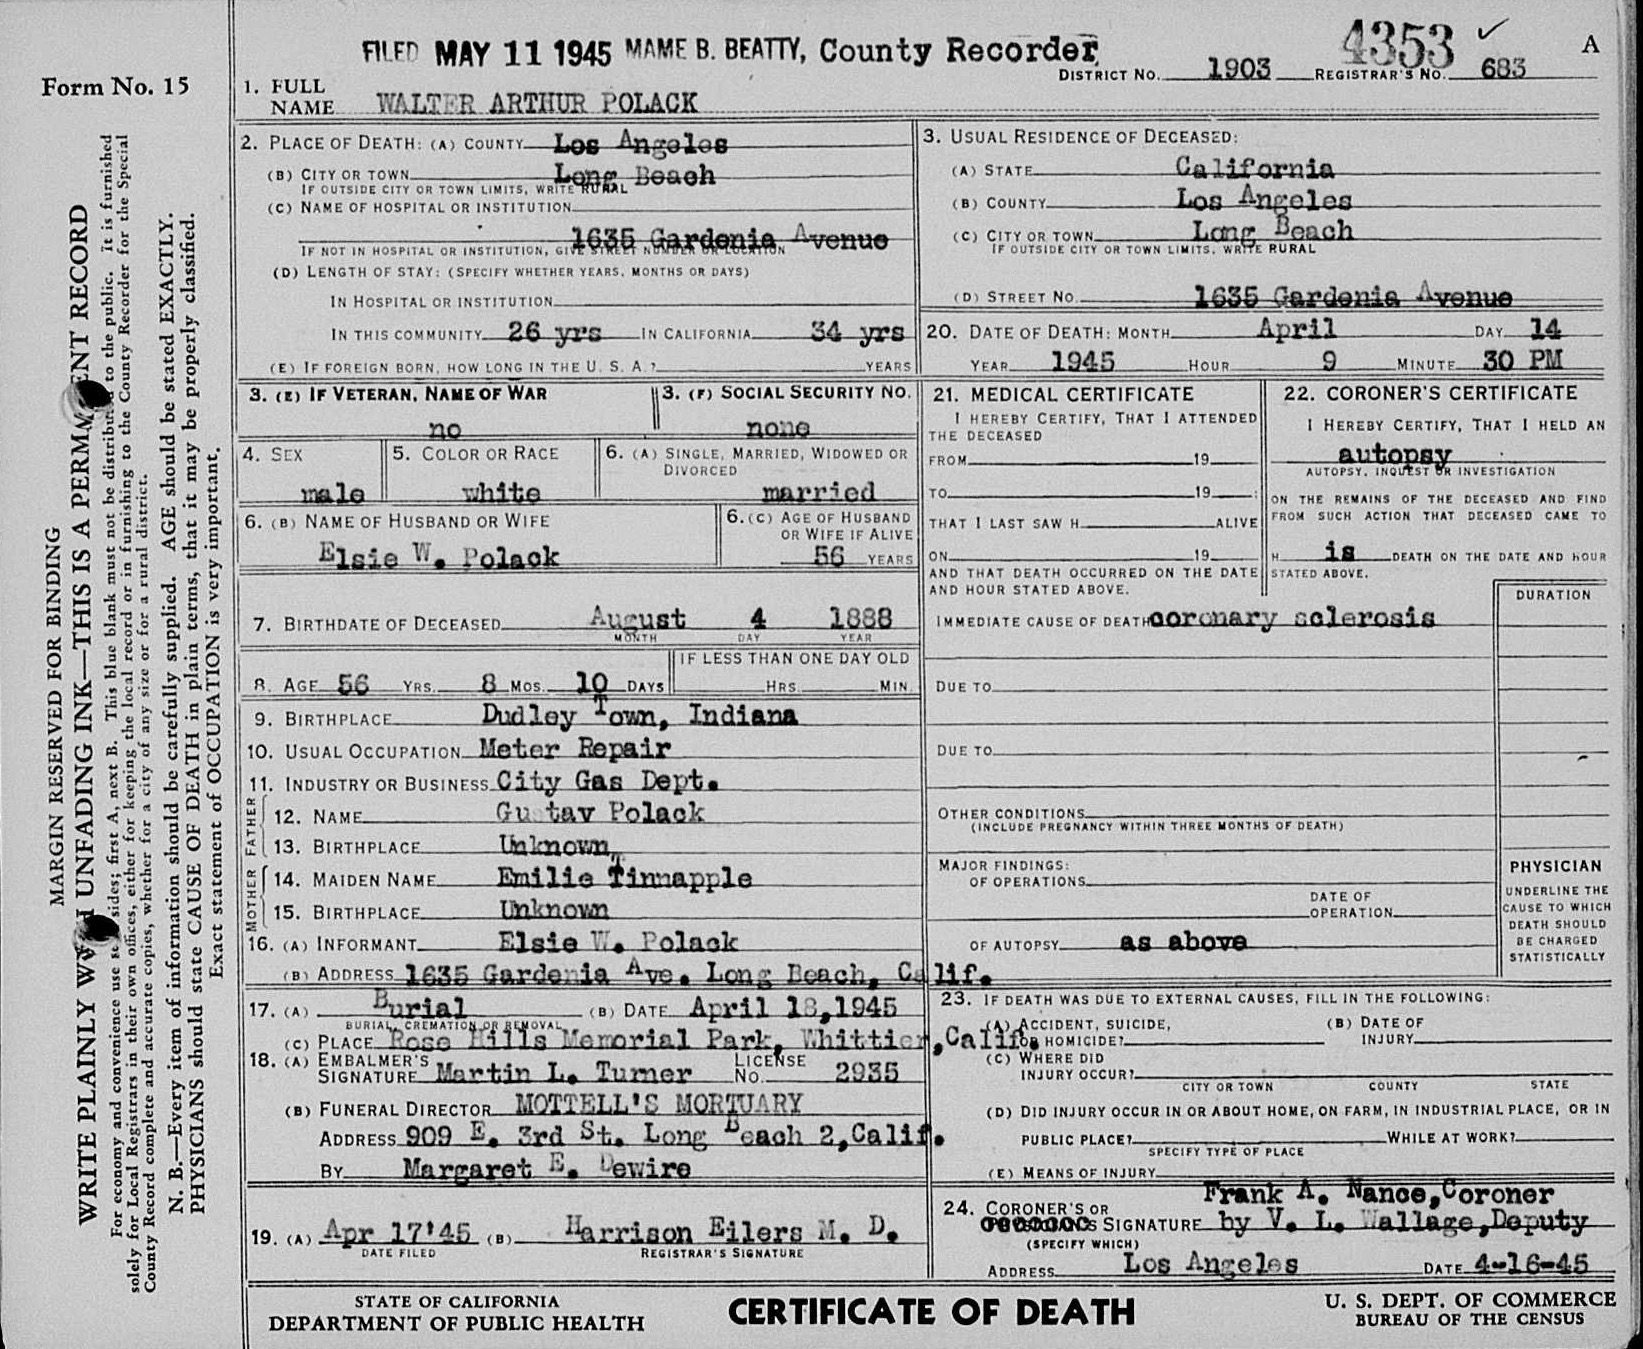 FILED MAY 11 1945 MAME B. BEATTY, County Recorder
4353 ✓
A
DISTRICT NO. 1903 REGISTRAR'S NO. 683
Form No. 15
1. FULL NAME WALTER ARTHUR POLACK
2. PLACE OF DEATH: (A) COUNTY Los Angeles
(B) CITY OR TOWN Long Beach
IF OUTSIDE CITY OR TOWN LIMITS, WRITE RURAL
(C) NAME OF HOSPITAL OR INSTITUTION
1635 Gardenia Avenue
IF NOT IN HOSPITAL OR INSTITUTION, GIVE STREET NUMBER OR LOCATION
(D) LENGTH OF STAY: (SPECIFY WHETHER YEARS, MONTHS OR DAYS)
IN HOSPITAL OR INSTITUTION
IN THIS COMMUNITY 26 yrs IN CALIFORNIA 34 yrs
(E) IF FOREIGN BORN, HOW LONG IN THE U. S. A.? YEARS
3. USUAL RESIDENCE OF DECEASED:
(A) STATE California
(B) COUNTY Los Angeles
(C) CITY OR TOWN Long Beach
IF OUTSIDE CITY OR TOWN LIMITS, WRITE RURAL
(D) STREET NO. 1635 Gardenia Avenue
20. DATE OF DEATH: MONTH April DAY 14
YEAR 1945 HOUR 9 MINUTE 30 PM
3. (E) IF VETERAN, NAME OF WAR
no
3. (F) SOCIAL SECURITY NO.
none
4. SEX
male
5. COLOR OR RACE
white
6. (A) SINGLE, MARRIED, WIDOWED OR DIVORCED
married
6. (B) NAME OF HUSBAND OR WIFE
Elsie W. Polack
6. (C) AGE OF HUSBAND OR WIFE IF ALIVE
56 YEARS
7. BIRTHDATE OF DECEASED August 4 1888
MONTH DAY YEAR
8. AGE 56 YRS. 8 MOS. 10 DAYS
IF LESS THAN ONE DAY OLD
HRS. MIN.
9. BIRTHPLACE Dudley Town, Indiana
10. USUAL OCCUPATION Meter Repair
11. INDUSTRY OR BUSINESS City Gas Dept.
FATHER
12. NAME Gustav Polack
13. BIRTHPLACE Unknown
MOTHER
14. MAIDEN NAME Emilie Tinnapple
15. BIRTHPLACE Unknown
16. (A) INFORMANT Elsie W. Polack
(B) ADDRESS 1635 Gardenia Ave. Long Beach, Calif.
17. (A) Burial (B) DATE April 18,1945
BURIAL, CREMATION OR REMOVAL
(C) PLACE Rose Hills Memorial Park, Whittier,Calif.
18. (A) EMBALMER'S SIGNATURE Martin L. Turner LICENSE NO. 2935
(B) FUNERAL DIRECTOR MOTTELL'S MORTUARY
ADDRESS 909 E. 3rd St. Long Beach 2,Calif.
BY Margaret E. Dewire
19. (A) Apr 17'45 (B) Harrison Eilers M. D.
DATE FILED REGISTRAR'S SIGNATURE
21. MEDICAL CERTIFICATE
I HEREBY CERTIFY, THAT I ATTENDED
THE DECEASED
FROM 19
TO 19 :
THAT I LAST SAW H ALIVE
ON 19
AND THAT DEATH OCCURRED ON THE DATE
AND HOUR STATED ABOVE.
22. CORONER'S CERTIFICATE
I HEREBY CERTIFY, THAT I HELD AN
autopsy
AUTOPSY, INQUEST OR INVESTIGATION
ON THE REMAINS OF THE DECEASED AND FIND
FROM SUCH ACTION THAT DECEASED CAME TO
H is DEATH ON THE DATE AND HOUR
STATED ABOVE.
DURATION
IMMEDIATE CAUSE OF DEATH coronary sclerosis
DUE TO
DUE TO
OTHER CONDITIONS
(INCLUDE PREGNANCY WITHIN THREE MONTHS OF DEATH)
MAJOR FINDINGS:
OF OPERATIONS
DATE OF OPERATION
OF AUTOPSY as above
PHYSICIAN
UNDERLINE THE
CAUSE TO WHICH
DEATH SHOULD
BE CHARGED
STATISTICALLY
23. IF DEATH WAS DUE TO EXTERNAL CAUSES, FILL IN THE FOLLOWING:
(A) ACCIDENT, SUICIDE, OR HOMICIDE? (B) DATE OF INJURY
(C) WHERE DID INJURY OCCUR?
CITY OR TOWN COUNTY STATE
(D) DID INJURY OCCUR IN OR ABOUT HOME, ON FARM, IN INDUSTRIAL PLACE, OR IN
PUBLIC PLACE? WHILE AT WORK?
SPECIFY TYPE OF PLACE
(E) MEANS OF INJURY
Frank A. Nance,Coroner
24. CORONER'S OR
SIGNATURE by V. L. Wallage,Deputy
(SPECIFY WHICH)
ADDRESS Los Angeles DATE 4-16-45
STATE OF CALIFORNIA
DEPARTMENT OF PUBLIC HEALTH
CERTIFICATE OF DEATH
U. S. DEPT. OF COMMERCE
BUREAU OF THE CENSUS
MARGIN RESERVED FOR BINDING
WRITE PLAINLY WITH UNFADING INK—THIS IS A PERMANENT RECORD
For economy and convenience use sides; first A, next B. This blue blank must not be distributed to the public. It is furnished
solely for Local Registrars in their own offices, either for keeping the local record or in furnishing to the County Recorder for the Special
County Record complete and accurate copies, whether for a city of any size or for a rural district.
N. B.—Every item of information should be carefully supplied. AGE should be stated EXACTLY.
PHYSICIANS should state CAUSE OF DEATH in plain terms, that it may be properly classified.
Exact statement of OCCUPATION is very important.